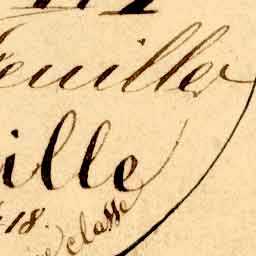 Feuilles
ille
18.
classe